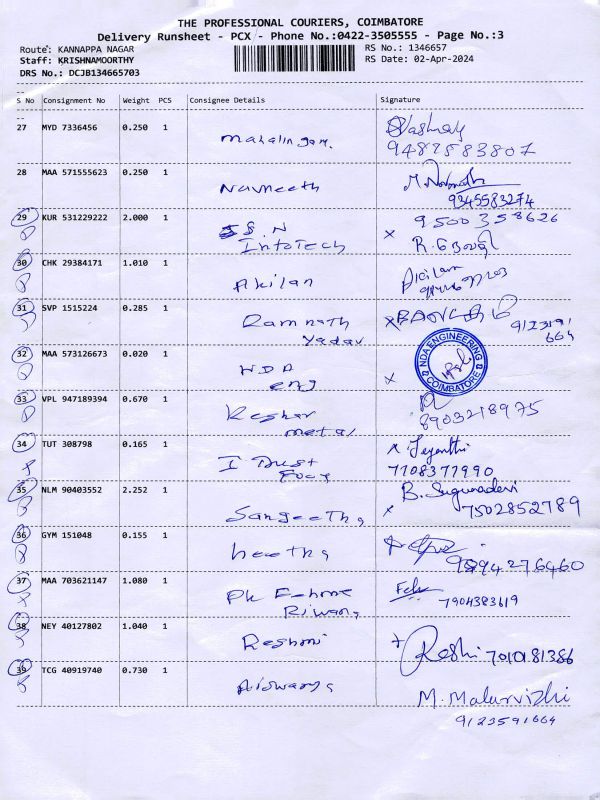 THE PROFESSIONAL COURIERS, COIMBATORE
Delivery Runsheet - PCX - Phone No.:0422-3505555 - Page No.:3
Route: KANNAPPA NAGAR RS No.: 1346657
Staff: KRISHNAMOORTHY RS Date: 02-Apr-2024
DRS No.: DCJB134665703
S No Consignment No Weight PCS Consignee Details Signature
27 MYD 7336456 0.250 1 Mahalingam.
9487583807
28 MAA 571555623 0.250 1 Navneeth
9345583274
29 KUR 531229222 2.000 1 S.N InfoTech x 9500358626
30 CHK 29384171 1.010 1 Akilan Akilan
31 SVP 1515224 0.285 1 Ramnath Yadav x
9123591664
32 MAA 573126673 0.020 1 NDA eng x NDA ENGINEERING COIMBATORE
33 VPL 947189394 0.670 1 Keshar metal 8903218975
34 TUT 308798 0.165 1 I Trust x Jeyanthi
7708377990
35 NLM 90403552 2.252 1 Sangeetha x B. Sugunadevi
7502852789
36 GYM 151048 0.155 1 heetha
9994276460
37 MAA 703621147 1.080 1 PK
7904383619
38 NEY 40127802 1.040 1 Reshmi Reshi 7010181386
39 TCG 40919740 0.730 1 Aiswarya M. Malarvizhi
9123591664